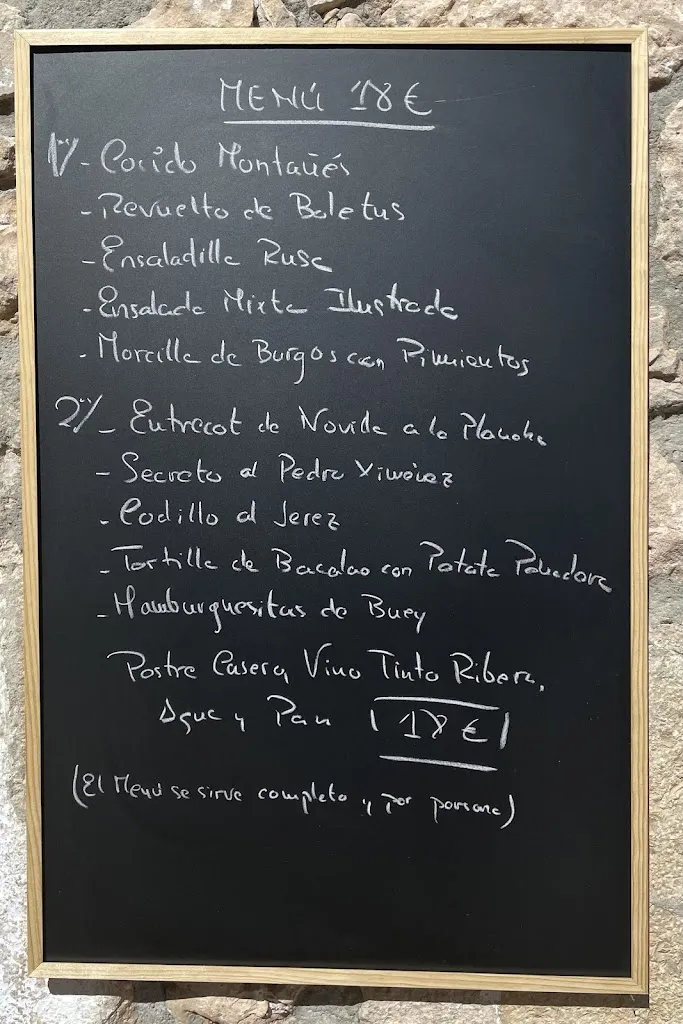 MENÚ 18 €
1/- Cocido Montañés
- Revuelto de Boletus
- Ensaladilla Rusa
- Ensalada Mixta Ilustrada
- Morcilla de Burgos con Pimientos
2/- Entrecot de Novilla a la Plancha
- Secreto al Pedro Ximénez
- Codillo al Jerez
- Tortilla de Bacalao con Patata Panadera
- Hamburguesitas de Buey
Postre Casero, Vino Tinto Ribera,
Agua y Pan 18 €
(El Menú se sirve completo y por persona)